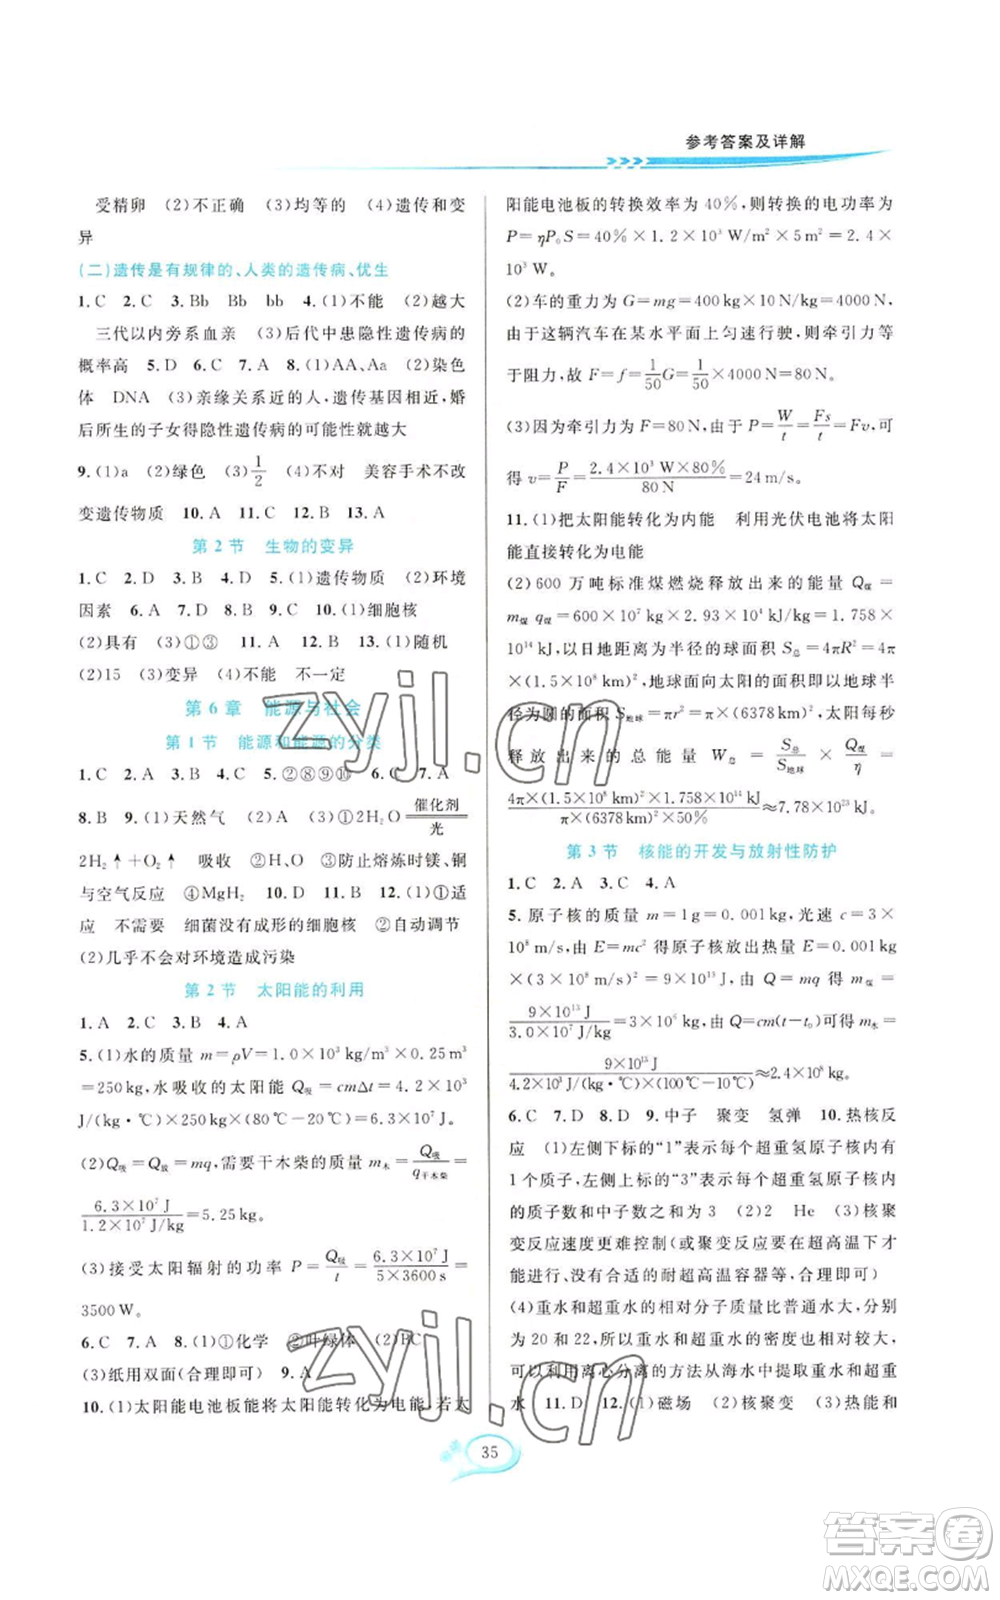 参考答案及详解
受精卵 (2)不正确 (3)均等的 (4)遗传和变
异
(二)遗传是有规律的、人类的遗传病、优生
1. C 2. C 3. Bb Bb bb 4. (1)不能 (2)越大
三代以内旁系血亲 (3)后代中患隐性遗传病的
概率高 5. D 6. C 7. A 8. (1)AA、Aa (2)染色
体 DNA (3)亲缘关系近的人,遗传基因相近,婚
后所生的子女得隐性遗传病的可能性就越大
9. (1)a (2)绿色 (3)1/2 (4)不对 美容手术不改
变遗传物质 10. A 11. C 12. B 13. A
第 2 节 生物的变异
1. C 2. D 3. B 4. D 5. (1)遗传物质 (2)环境
因素 6. A 7. D 8. B 9. C 10. (1)细胞核
(2)具有 (3)①③ 11. A 12. B 13. (1)随机
(2)15 (3)变异 (4)不能 不一定
第 6 章 能源与社会
第 1 节 能源和能源的分类
1. C 2. A 3. D 4. C 5. ②⑧⑨⑩ 6. C 7. A
8. B 9. (1)天然气 (2)A (3)①2H₂O 催化剂/光
2H₂↑+O₂↑ 吸收 ②H₂ ③防止熔炼时镁、铜
与空气反应 ④MgH₂ 10. A 11. C 12. (1)①适
应 不需要 细菌没有成形的细胞核 ②自动调节
(2)几乎不会对环境造成污染
第 2 节 太阳能的利用
1. A 2. C 3. B 4. A
5. (1)水的质量 m=ρV=1.0×10³ kg/m³×0.25 m³
=250 kg,水吸收的太阳能 Q吸=cmΔt=4.2×10³
J/(kg·℃)×250 kg×(80℃-20℃)=6.3×10⁷ J
(2)Q吸=Q放=mq,需要干木柴的质量 m木=Q吸/q干木柴=
6.3×10⁷ J/1.2×10⁷ J/kg=5.25 kg。
(3)接受太阳辐射的功率 P=Q吸/t=6.3×10⁷ J/5×3600 s=
3500 W。
6. C 7. A 8. (1)①化学 ②叶绿体 (2)BC
(3)纸用双面(合理即可) 9. A
10. (1)太阳能电池板能将太阳能转化为电能,若太
阳能电池板的转换效率为 40%,则转换的电功率为
P=ηP₀S=40%×1.2×10³ W/m²×5 m²=2.4×
10³ W。
(2)车的重力为 G=mg=400 kg×10 N/kg=4000 N,
由于这辆汽车在某水平面上匀速行驶,则牵引力等
于阻力,故 F=f=1/50 G=1/50×4000 N=80 N。
(3)因为牵引力 F=80 N,由于 P=W/t=Fs/t=Fv,可
得 v=P/F=2.4×10³ W×80%/80 N=24 m/s。
11. (1)把太阳能转化为内能 利用光伏电池将太阳
能直接转化为电能
(2)600 万吨标准煤燃烧释放出来的能量 Q煤=
m煤 q煤=600×10⁷ kg×2.93×10⁴ kJ/kg≈1.758×
10¹⁴ kJ,以日地距离为半径的球面积 S总=4πR²=4π
×(1.5×10⁸ km)²,地球面向太阳的面积即以地球半
径为圆的面积 S地球=πr²=π×(6378 km)²,太阳每秒
释放出来的总能量 W总=S总/S地球×Q煤/η=
4π×(1.5×10⁸ km)²×1.758×10¹⁴ kJ/π×(6378 km)²×50%≈7.78×10²³ kJ。
第 3 节 核能的开发与放射性防护
1. C 2. A 3. C 4. A
5. 原子核的质量 m=1 g=0.001 kg,光速 c=3×
10⁸ m/s,由 E=mc² 得原子核放出热量 E=0.001 kg
×(3×10⁸ m/s)²=9×10¹³ J,由 Q=mq 得 m煤=
9×10¹³ J/3.0×10⁷ J/kg=3×10⁶ kg,由 Q=cm(t-t₀)得 m水=
9×10¹³ J/4.2×10³ J/(kg·℃)×(100℃-10℃)≈2.4×10⁸ kg。
6. C 7. D 8. D 9. 中子 聚变 氢弹 10. 热核反
应 (1)左侧下标的“1”表示每个超重氢原子核内有
1 个质子,左侧上标的“3”表示每个超重氢原子核内
的质子数和中子数之和为 3 (2)2 He (3)核聚
变反应速度更难控制(或聚变反应在超高温下才
能进行,没有合适的耐超高温容器等,合理即可)
(4)重水和超重水的相对分子质量比普通水大,分别
为 20 和 22,所以重水和超重水的密度也相对较大,
可以利用离心分离的方法从海水中提取重水和超重
水 11. D 12. (1)磁场 (2)核聚变 (3)热能和
35
zyjl.cn
zyjl.cn
答案圈
MXQE.COM